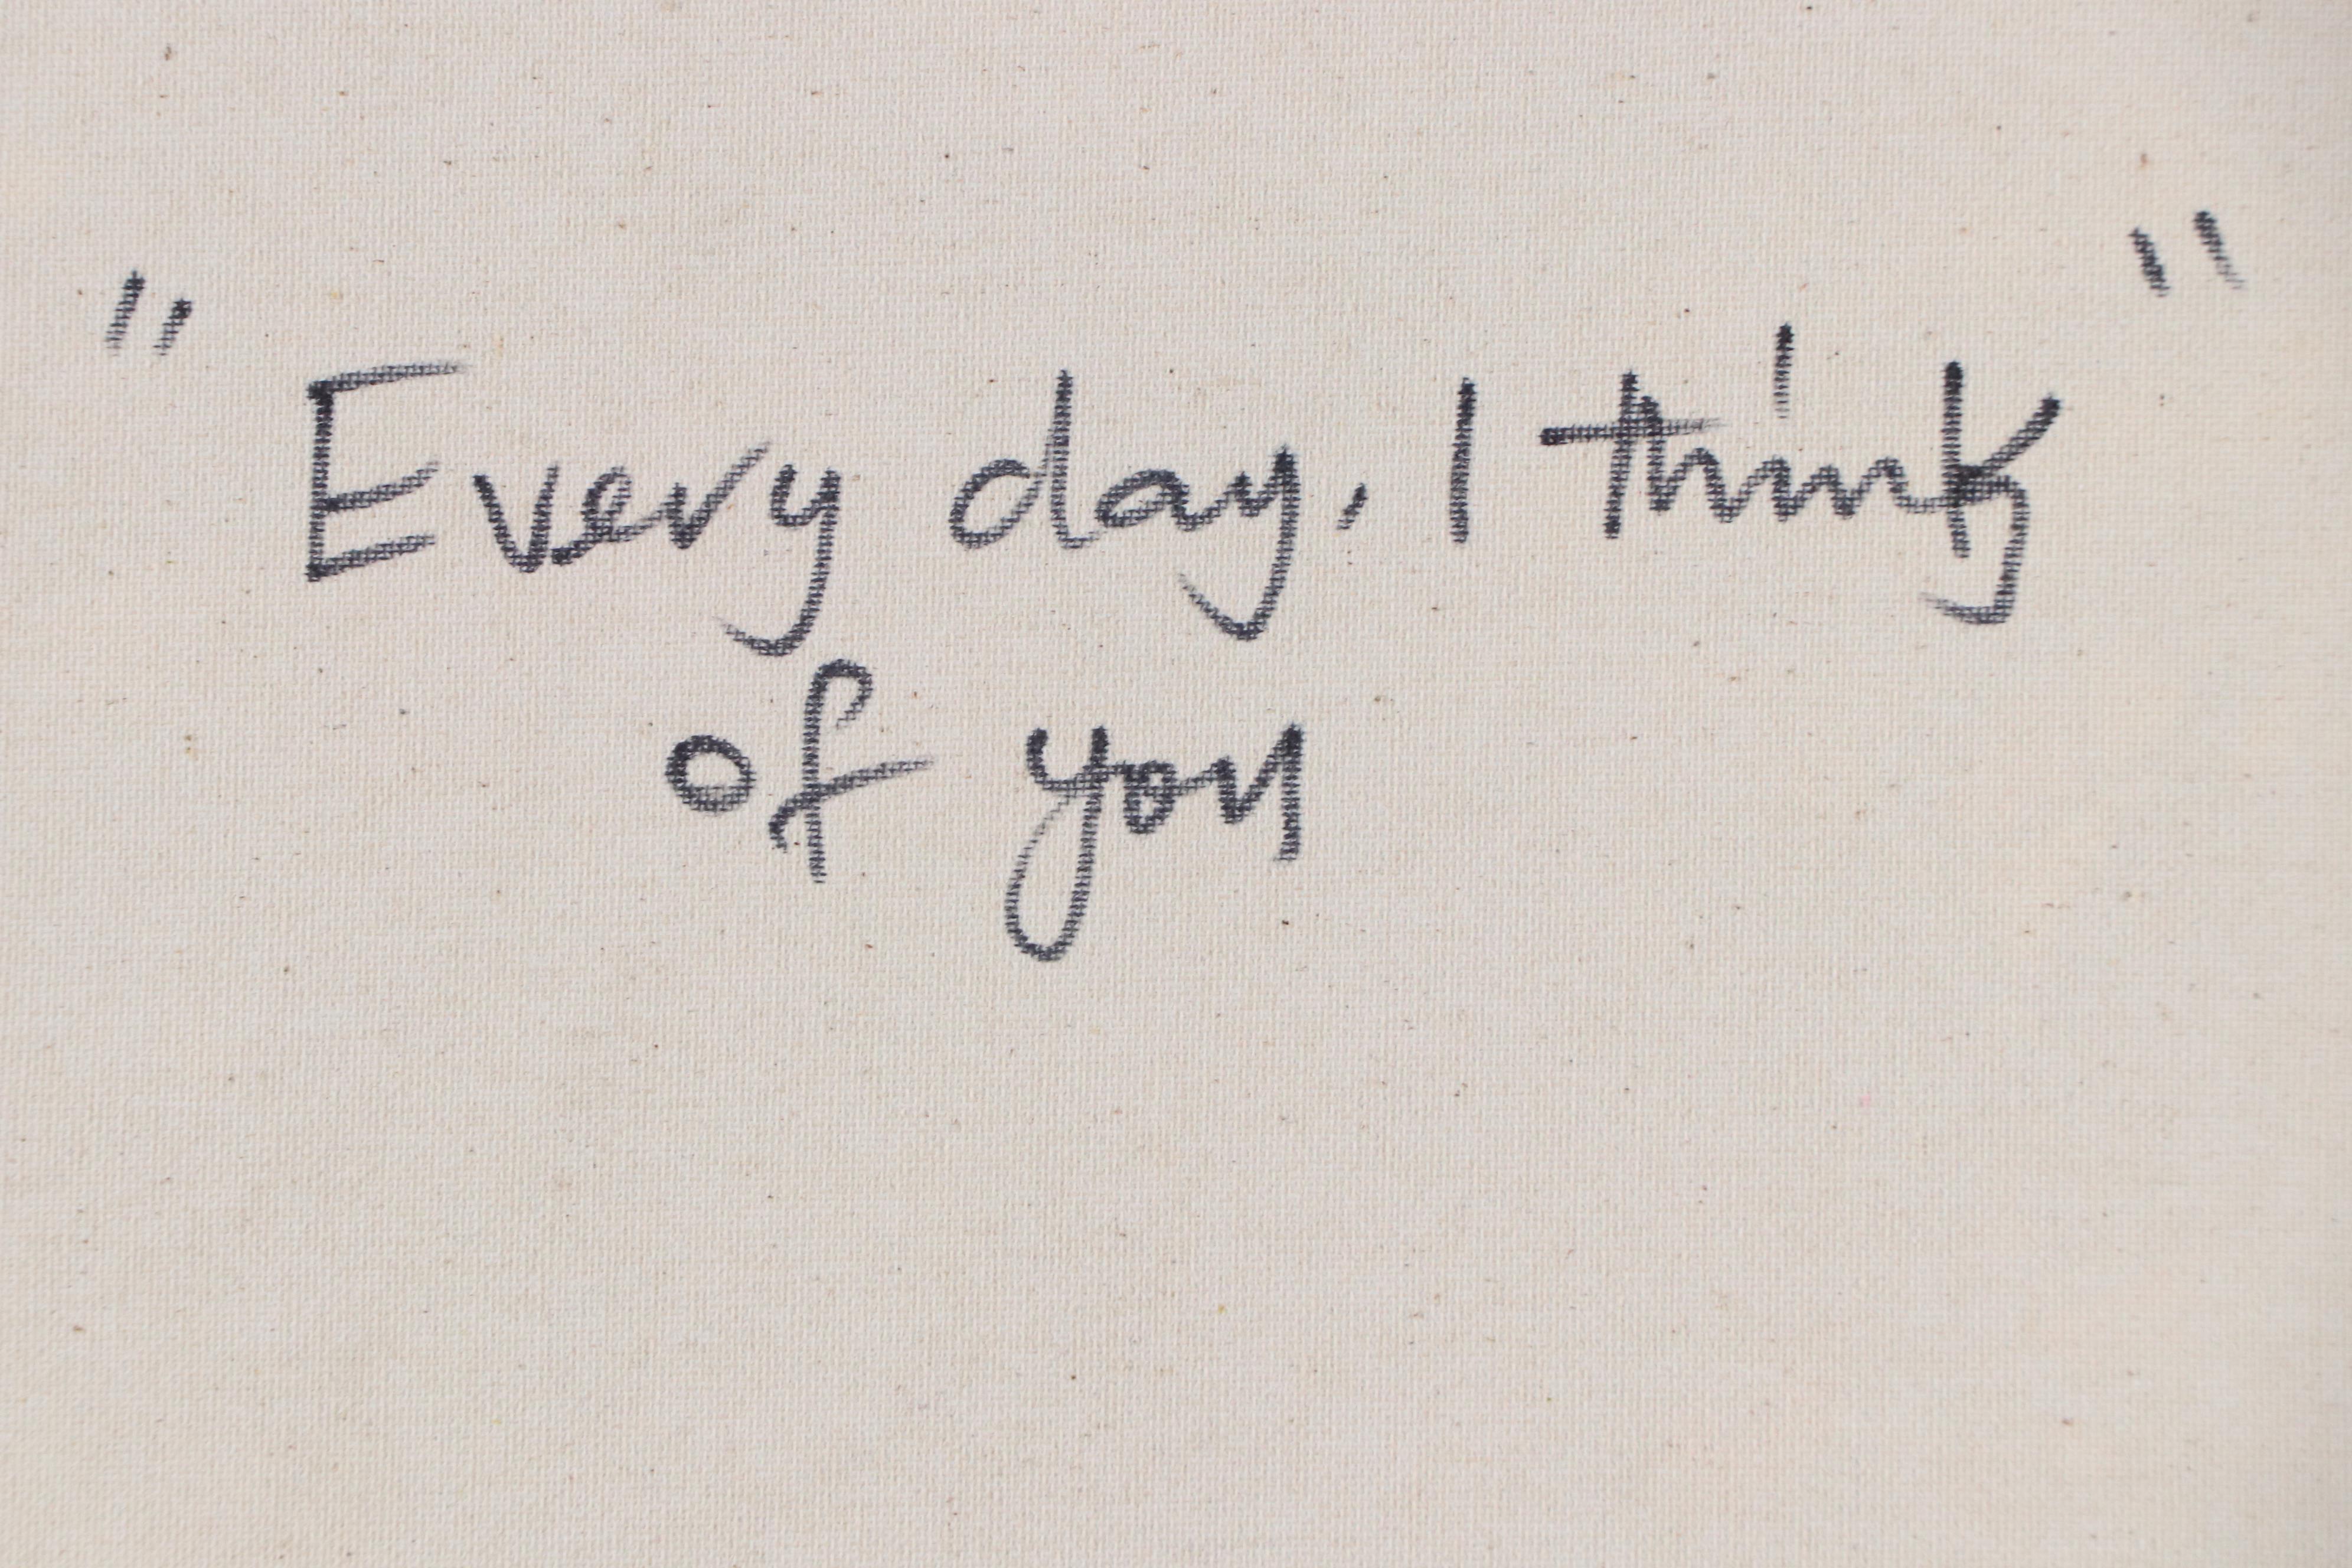 "Every day, I think"
of you